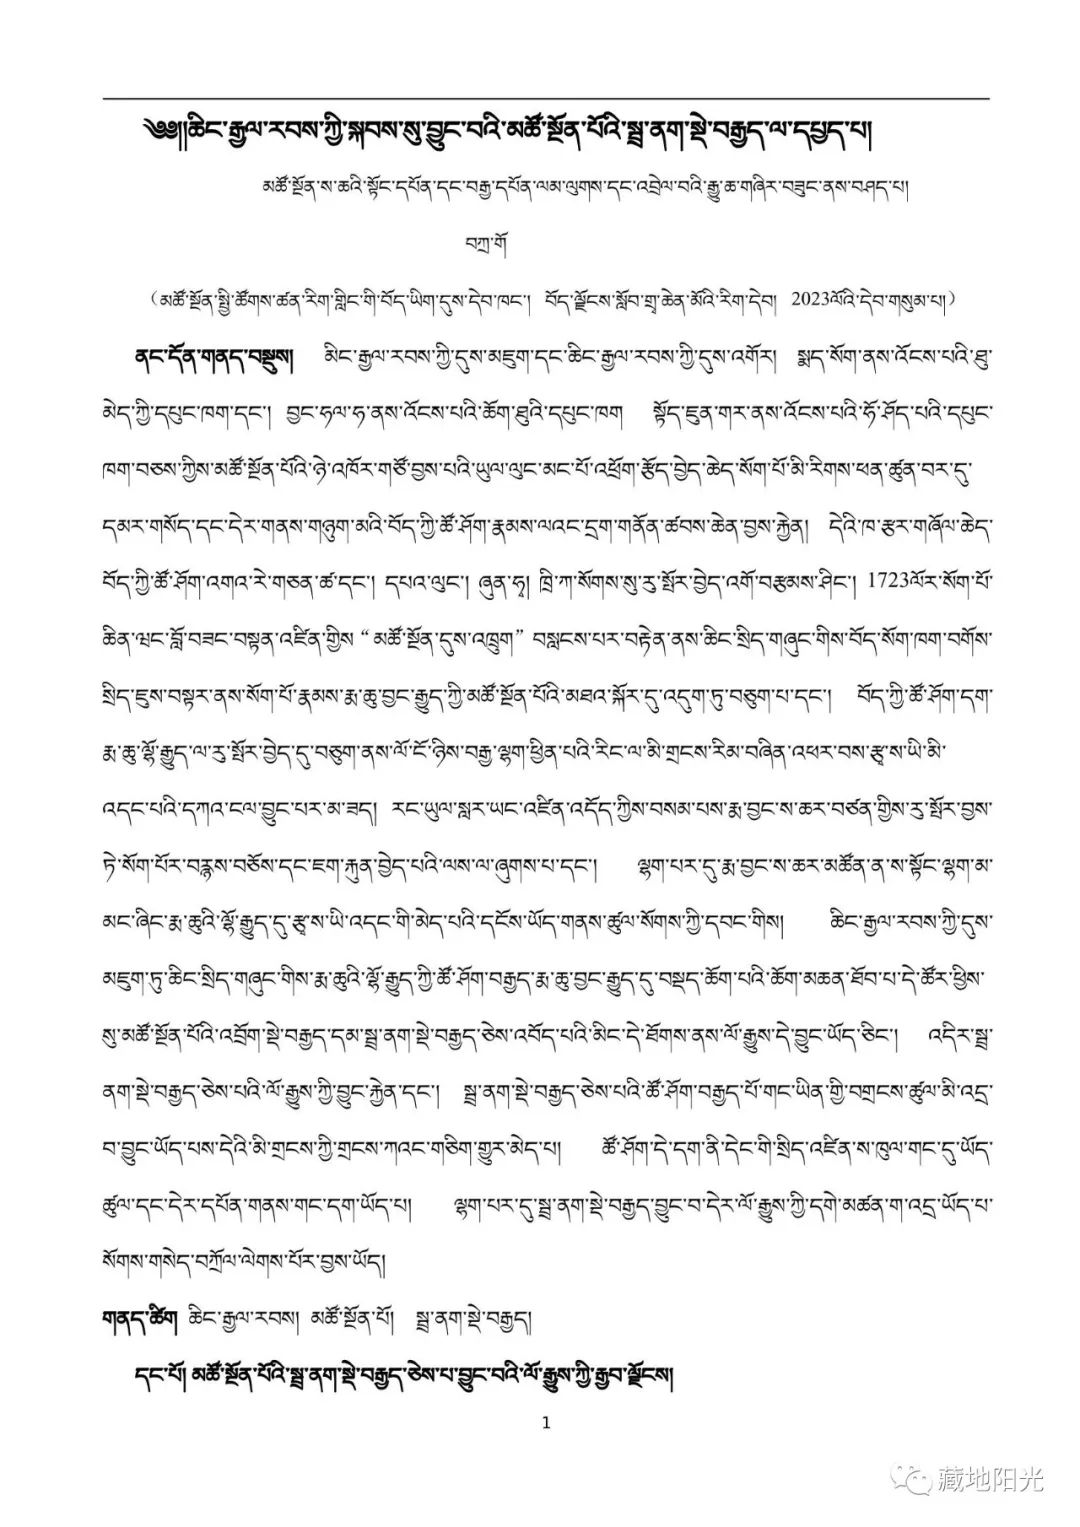 ༄༅།།ཆིང་རྒྱལ་རབས་ཀྱི་སྐབས་སུ་བྱུང་བའི་མཚོ་སྔོན་པོའི་སྦྲ་ནག་སྡེ་བརྒྱད་ལ་དཔྱད་པ།
མཚོ་སྔོན་ས་ཆའི་སྟོང་དཔོན་དང་བརྒྱ་དཔོན་ལམ་ལུགས་དང་འབྲེལ་བའི་རྒྱུ་ཆ་གཞིར་བཟུང་ནས་བཤད་པ།
བཀྲ་གོ
（མཚོ་སྔོན་སྤྱི་ཚོགས་ཚན་རིག་གླིང་གི་བོད་ཡིག་དུས་དེབ་ཁང་། བོད་ལྗོངས་སློབ་གྲྭ་ཆེན་མོའི་རིག་དེབ། 2023ལོའི་དེབ་གསུམ་པ།）
ནང་དོན་གནད་བསྡུས། མིང་རྒྱལ་རབས་ཀྱི་དུས་མཇུག་དང་ཆིང་རྒྱལ་རབས་ཀྱི་དུས་འགོར། སྨད་སོག་ནས་འོངས་པའི་ཐུ་
མེད་ཀྱི་དཔུང་ཁག་དང་། བྱང་ཧལ་ཧ་ནས་འོངས་པའི་ཆོག་ཐུའི་དཔུང་ཁག སྟོད་ཇུན་གར་ནས་འོངས་པའི་ཧོ་ཤོད་པའི་དཔུང་
ཁག་བཅས་ཀྱིས་མཚོ་སྔོན་པོའི་ཉེ་འཁོར་གཙོ་བྱས་པའི་ཡུལ་ལུང་མང་པོ་འཕྲོག་རྩོད་བྱེད་ཆེད་སོག་པོ་མི་རིགས་ཕན་ཚུན་བར་དུ་
དམར་གསོད་དང་དེར་གནས་གཉུག་མའི་བོད་ཀྱི་ཚོ་ཤོག་རྣམས་ལའང་དྲག་གནོན་ཚབས་ཆེན་བྱས་རྐྱེན། དེའི་ཁ་རྩར་གཞོལ་ཆེད་
བོད་ཀྱི་ཚོ་ཤོག་འགའ་རེ་གཅན་ཚ་དང་། དཔའ་ལུང་། ཞུན་ཧྭ། ཁྲི་ཀ་སོགས་སུ་རུ་སྤོར་བྱེད་འགོ་བརྩམས་ཤིང་། 1723ལོར་སོག་པོ་
ཆིན་ཝང་བློ་བཟང་བསྟན་འཛིན་གྱིས “མཚོ་སྔོན་དུས་འཁྲུག” བསླངས་པར་བརྟེན་ནས་ཆིང་སྲིད་གཞུང་གིས་བོད་སོག་ཁག་བགོས་
སྲིད་ཇུས་བསྟར་ནས་སོག་པོ་རྣམས་རྨ་ཆུ་བྱང་རྒྱུད་ཀྱི་མཚོ་སྔོན་པོའི་མཐའ་སྐོར་དུ་འདུག་ཏུ་བཅུག་པ་དང་། བོད་ཀྱི་ཚོ་ཤོག་དག་
རྨ་ཆུ་ལྷོ་རྒྱུད་ལ་རུ་སྤོར་བྱེད་དུ་བཅུག་ནས་ལོ་ངོ་ཉིས་བརྒྱ་ལྷག་ཕྱིན་པའི་རིང་ལ་མི་གྲངས་རིམ་བཞིན་འཕར་བས་རྩྭ་ས་ཡི་མི་
འདང་པའི་དཀའ་ངལ་བྱུང་པར་མ་ཟད། རང་ཡུལ་སླར་ཡང་འཛིན་འདོད་ཀྱིས་བསམ་པས་རྨ་བྱང་ས་ཆར་བཙན་གྱིས་རུ་སྤོར་བྱས་
ཏེ་སོག་པོར་བརྙས་བཅོས་དང་ཇག་རྐུན་བྱེད་པའི་ལས་ལ་ཞུགས་པ་དང་། ལྷག་པར་དུ་རྨ་བྱང་ས་ཆར་མཚོན་ན་ས་སྟོང་ལྷག་མ་
མང་ཞིང་རྨ་ཆུའི་ལྷོ་རྒྱུད་དུ་རྩྭ་ས་ཡི་འདང་གི་མེད་པའི་དངོས་ཡོད་གནས་ཚུལ་སོགས་ཀྱི་དབང་གིས། ཆིང་རྒྱལ་རབས་ཀྱི་དུས་
མཇུག་ཏུ་ཆིང་སྲིད་གཞུང་གིས་རྨ་ཆུའི་ལྷོ་རྒྱུད་ཀྱི་ཚོ་ཤོག་བརྒྱད་རྨ་ཆུ་བྱང་རྒྱུད་དུ་བསྡད་ཆོག་པའི་ཆོག་མཆན་ཐོབ་པ་དེ་ཚོར་ཕྱིས་
སུ་མཚོ་སྔོན་པོའི་འབྲོག་སྡེ་བརྒྱད་དམ་སྦྲ་ནག་སྡེ་བརྒྱད་ཅེས་འབོད་པའི་མིང་དེ་ཐོགས་ནས་ལོ་རྒྱུས་དེ་བྱུང་ཡོད་ཅིང་། འདིར་སྦྲ་
ནག་སྡེ་བརྒྱད་ཅེས་པའི་ལོ་རྒྱུས་ཀྱི་བྱུང་རྐྱེན་དང་། སྦྲ་ནག་སྡེ་བརྒྱད་ཅེས་པའི་ཚོ་ཤོག་བརྒྱད་པོ་གང་ཡིན་གྱི་བགྲངས་ཚུལ་མི་འདྲ་
བ་བྱུང་ཡོད་པས་དེའི་མི་གྲངས་ཀྱི་གྲངས་ཀའང་གཅིག་གྱུར་མེད་པ། ཚོ་ཤོག་དེ་དག་ནི་དེང་གི་སྲིད་འཛིན་ས་ཁུལ་གང་དུ་ཡོད་
ཚུལ་དང་དེར་དཔོན་གནས་གང་དག་ཡོད་པ། ལྷག་པར་དུ་སྦྲ་ནག་སྡེ་བརྒྱད་བྱུང་བ་དེར་ལོ་རྒྱུས་ཀྱི་དགེ་མཚན་ག་འདྲ་ཡོད་པ་
སོགས་གསེད་བཀྲོལ་ལེགས་པོར་བྱས་ཡོད།
གནད་ཚིག ཆིང་རྒྱལ་རབས། མཚོ་སྔོན་པོ། སྦྲ་ནག་སྡེ་བརྒྱད།
དང་པོ། མཚོ་སྔོན་པོའི་སྦྲ་ནག་སྡེ་བརྒྱད་ཅེས་པ་བྱུང་བའི་ལོ་རྒྱུས་ཀྱི་རྒྱབ་ལྗོངས།
1
藏地阳光